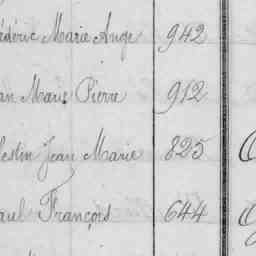 édéric Marie Ange 942
an Marie Pierre 912
lestin Jean Marie 825
aul François 644